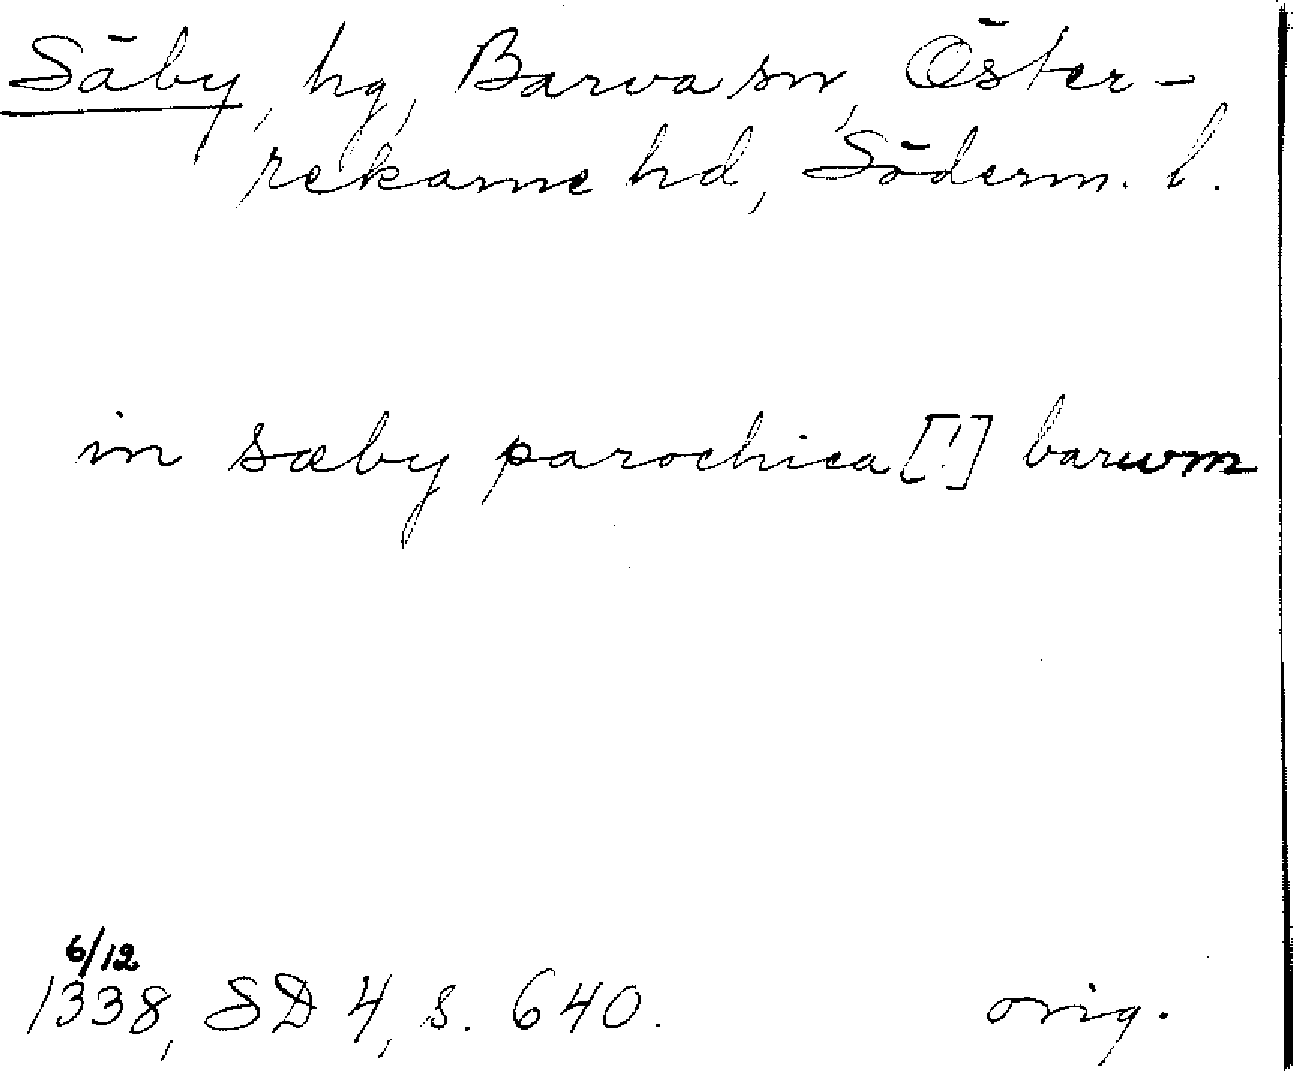 Säby, hg, Barva sn, Öster-
rekarne hd, Söderm. l.
in sæby parochica [!] barwm
6/12
1338, SD 4, s. 640. orig.